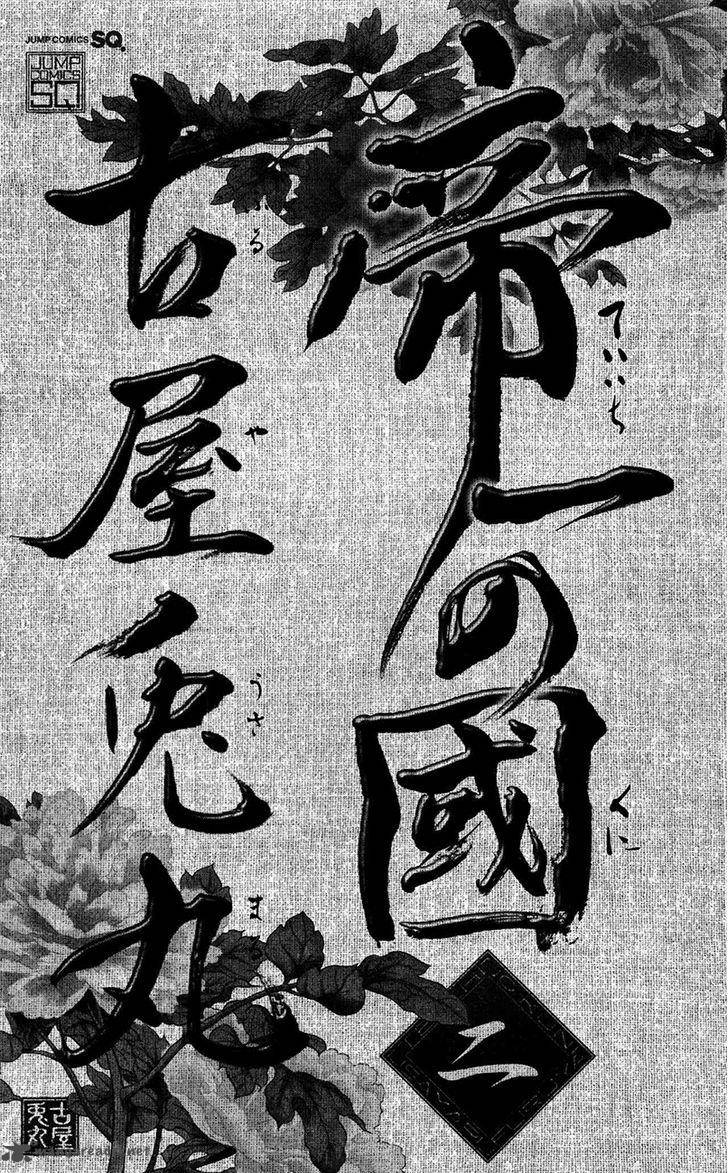 JUMP COMICS SQ.
JUMP
COMICS
SQ
帝一の國
ていいち
くに
二
古屋兎丸
ふるや
うさまる
古屋
兎丸